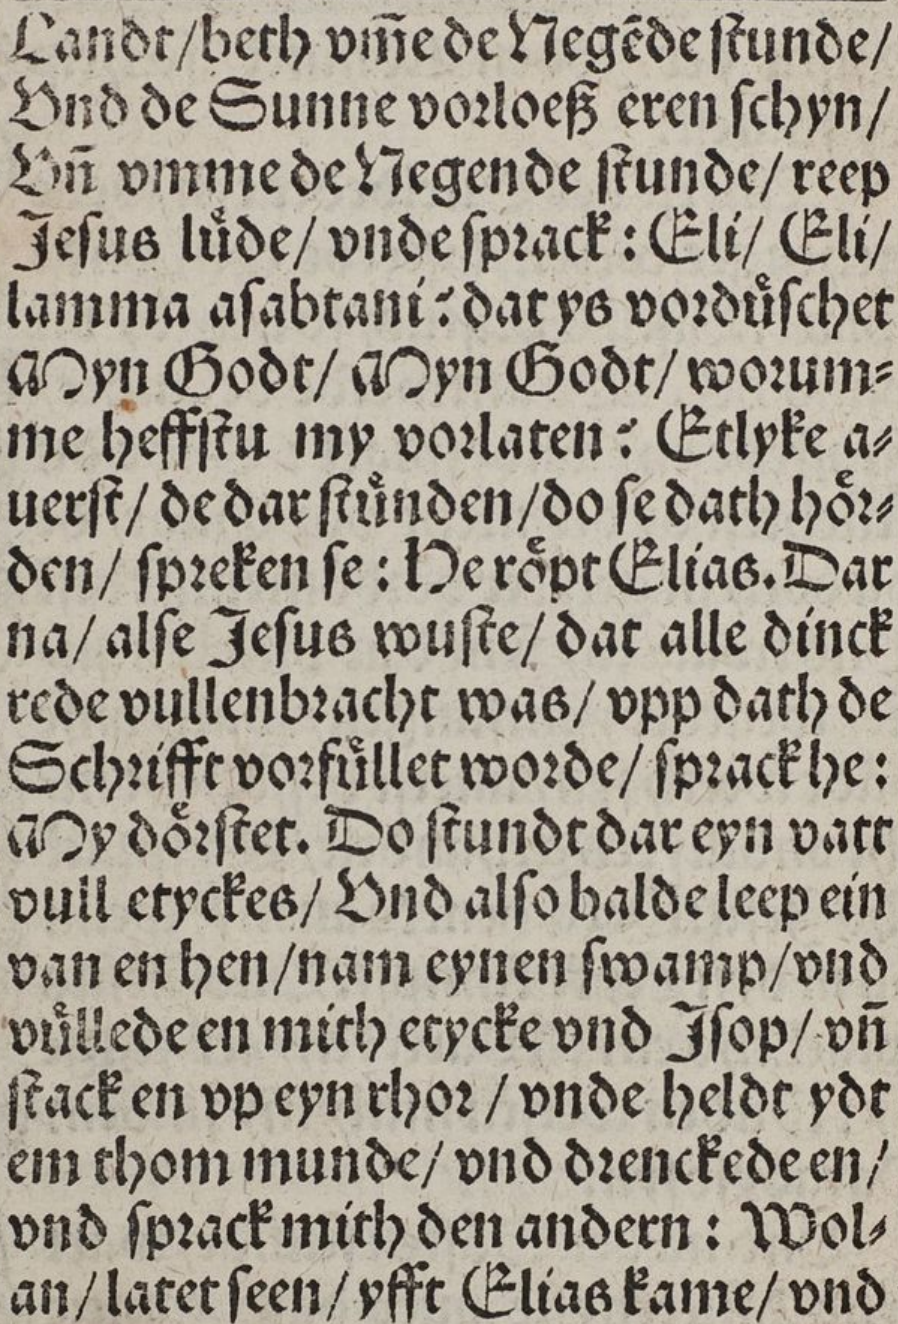 Landt/beth vm̄e de Negēde ſtunde/
Vnd de Sunne vorloeß eren ſchyn/
Vn̄ vmme de Negende ſtunde/ reep
Jeſus luͤde/ vnde ſprack: Eli/ Eli/
lamma aſabtani? dat ys vorduͤſchet
Myn Godt/ Myn Godt/ worum⸗
me heffſtu my vorlaten? Etlyke a⸗
uerſt/ de dar ſtuͤnden/do ſe dath hoͤr⸗
den/ ſpreken ſe: He roͤpt Elias. Dar
na/ alſe Jeſus wuſte/ dat alle dinck
rede vullenbracht was/ vpp dath de
Schrifft vorfuͤllet worde/ ſprack he:
My doͤrſtet. Do ſtundt dar eyn vatt
vull etyckes/ Vnd alſo balde leep ein
van en hen/nam eynen ſwamp/vnd
vuͤllede en mith etycke vnd Jſop/ vn̄
ſtack en vp eyn rhor / vnde heldt ydt
em thom munde/ vnd drenckede en/
vnd ſprack mith den andern: Wol⸗
an/ latet ſeen/ yfft Elias kame/ vnd